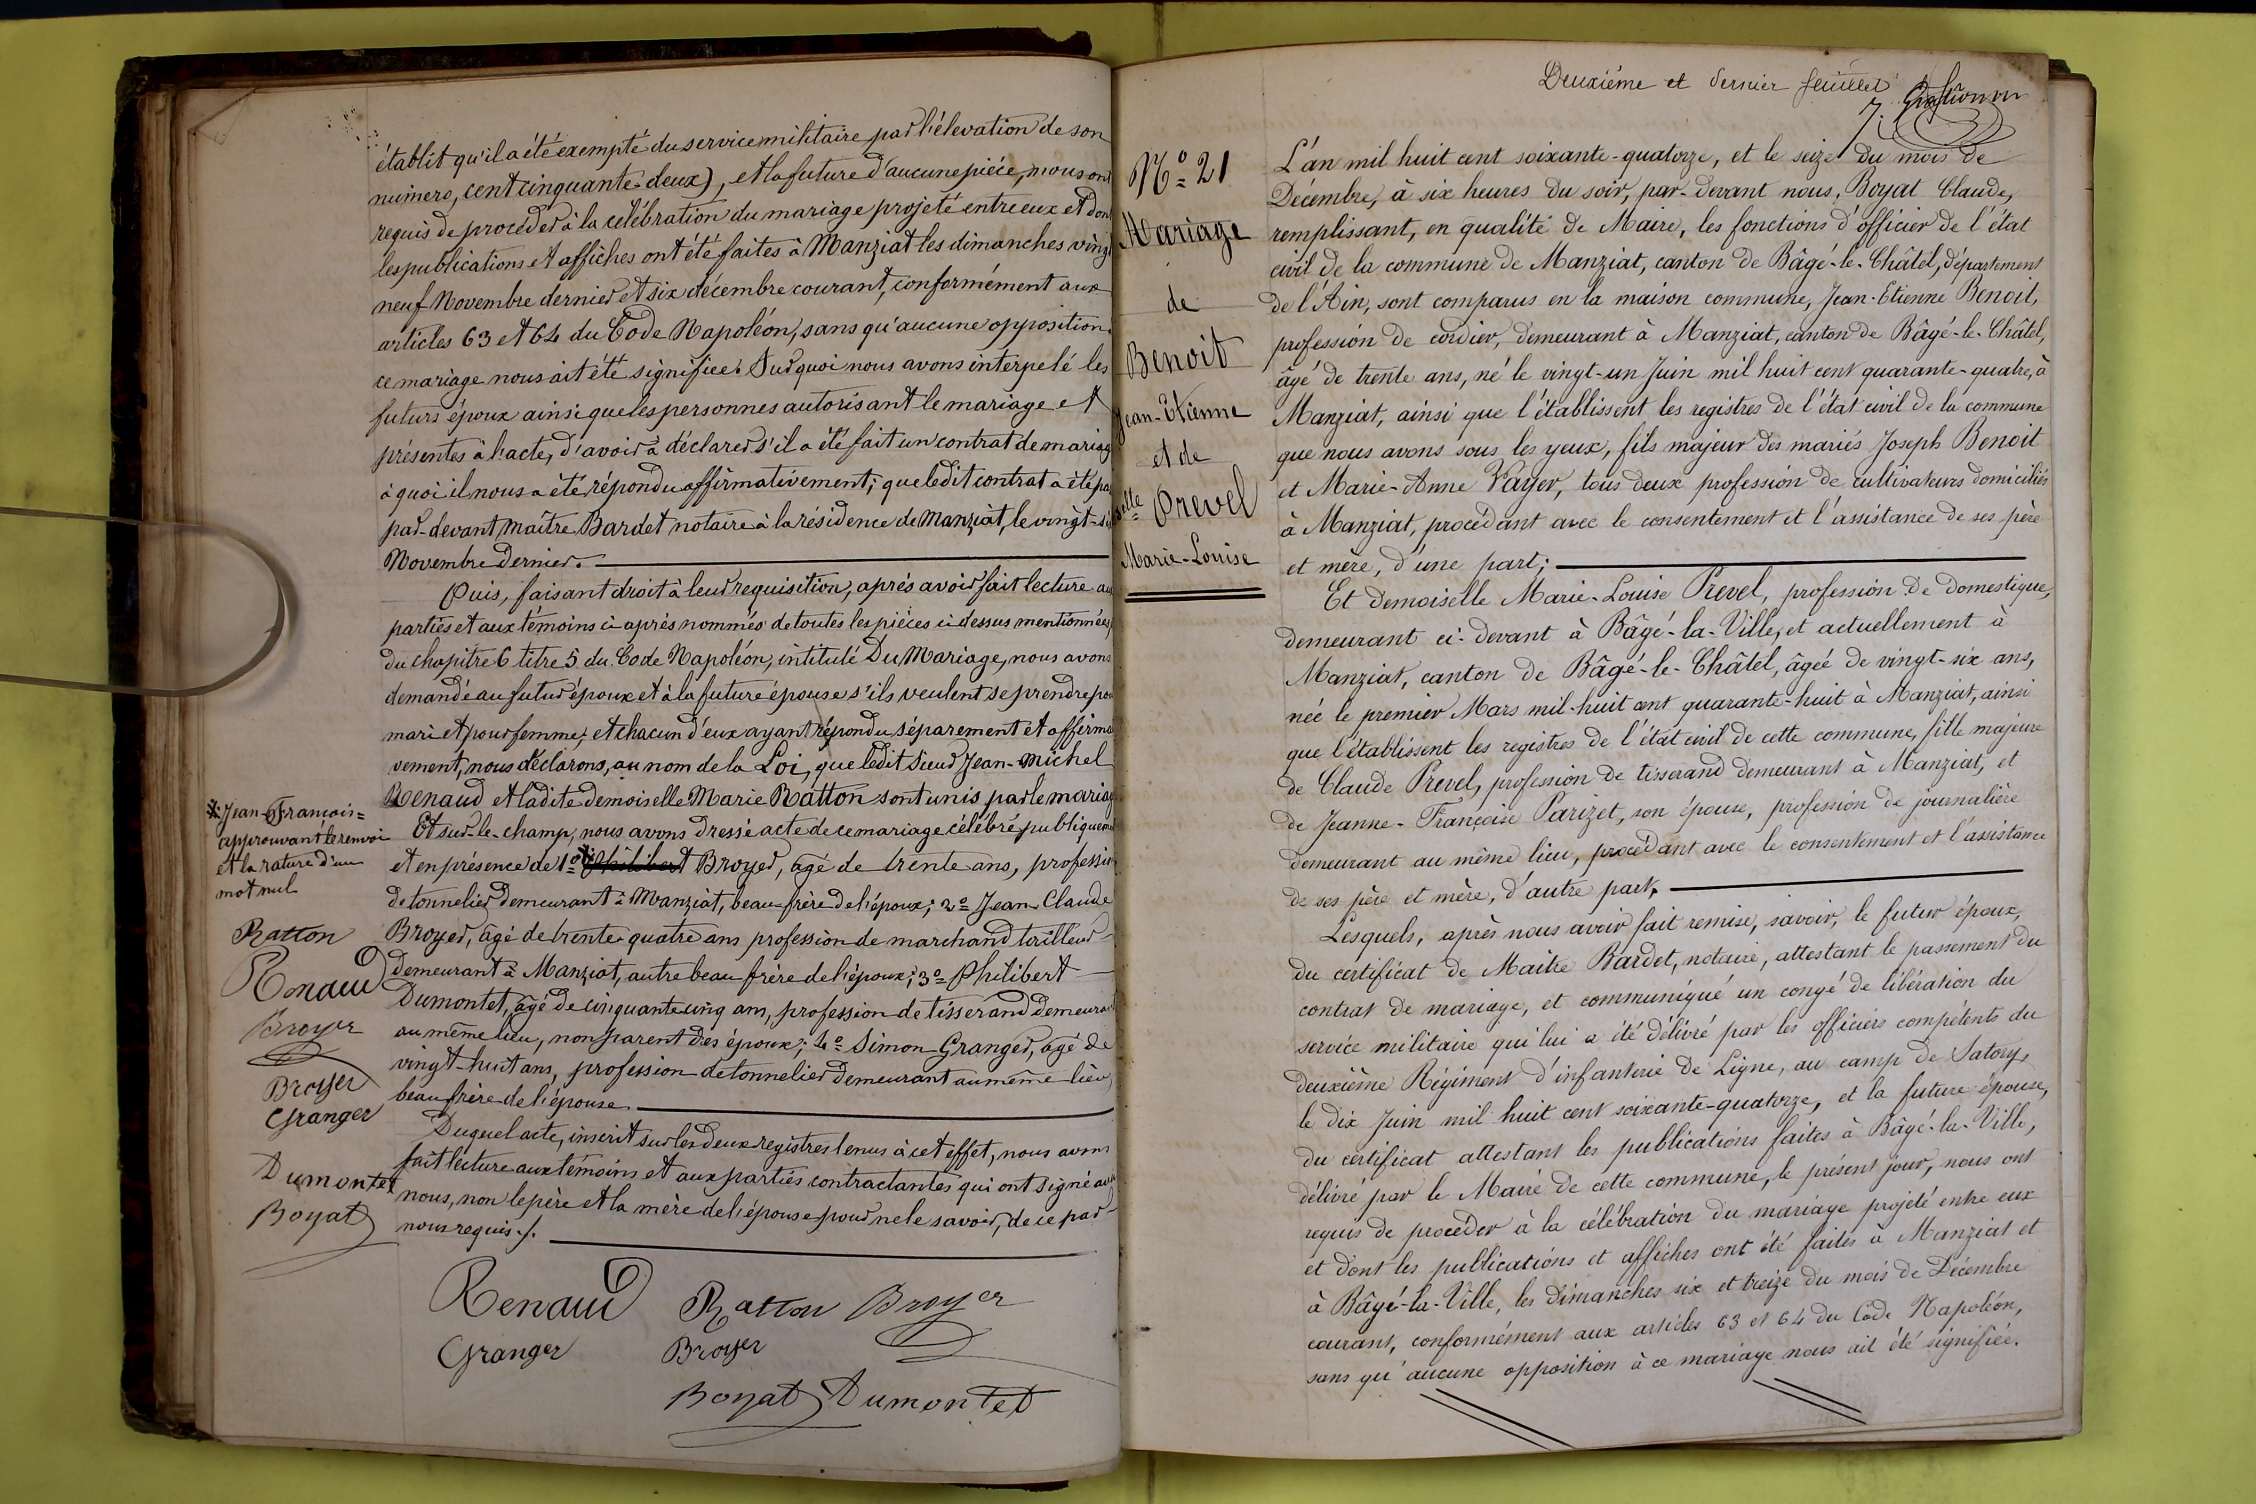 établit qu'il a été exempté du service militaire par l'élevation de son
numero, cent cinquante-deux), et la future d'aucune pièce, nous ont
requis de procéder à la célébration du mariage projeté entre eux et dont
les publications et affiches ont été faites à Manziat les dimanches vingt
neuf Novembre dernier et six décembre courant, conformément aux
articles 63 et 64 du Code Napoléon, sans qu'aucune opposition
ce mariage nous ait été signifiée. Sur quoi nous avons interpelé les
futurs époux ainsi que les personnes autorisant le mariage et
présentes à l'acte, d'avoir à déclarer s'il a été fait un contrat de mariag
à quoi il nous a été répondu affirmativement; que ledit contrat a été pa
par-devant maître Bardet notaire à la résidence de Manziat, le vingt-si
Novembre dernier.
Puis, faisant droit à leur requisition, après avoir fait lecture au
parties et aux témoins ci-après nommés de toutes les pièces ci dessus mentionnées
du chapitre 6 titre 5 du Code Napoléon, intitulé Du Mariage, nous avons
demandé au futur époux et à la future épouse s'ils veulent se prendre pou
mari et pour femme; et chacun d'eux ayant répondu séparement et affirma
vement, nous déclarons, au nom de la Loi, que ledit Sieur Jean-Michel
Renaud et ladite demoiselle Marie Ratton sont unis par le mariag
Et sur-le-champ, nous avons dressé acte de ce mariage célébré publiquem
et en présence de 1º Philibert Broyer, âgé de trente ans, profession
de tonnelier demeurant à Manziat, beau-frère de l'époux; 2º Jean-Claude
Broyer, âgé de trente-quatre ans profession de marchand toilleur
demeurant à Manziat, autre beau frère de l'époux; 3º Philibert
Dumontet, âgé de cinquante cinq ans, profession de tisserand demeura
au même lieu, non parent des époux; 4º Simon Granger, âgé de
vingt-huit ans, profession de tonnelier demeurant au même lieu,
beau frère de l'épouse.
Duquel acte, inscrit sur les deux registres tenus à cet effet, nous avons
fait lecture aux témoins et aux parties contractantes qui ont signé avec
nous, non le père et la mère de l'épouse pour ne le savoir, de ce par
nous requis./.
Renaud Ratton Broyer
Granger Broyer
Boyat Dumontet
Jean-François=
approuvant le renvoi
et la rature d'un
mot nul
Ratton
Renaud
Broyer
Broyer
Granger
Dumontet
Boyat
Deuxième et dernier feuillet
Nº 21
Mariage
de
Benoit
Jean-Etienne
et de
elle Prevel
Marie-Louise
L'an mil huit cent soixante-quatorze, et le seize du mois de
Décembre, à six heures du soir, par-devant nous, Boyat Claude,
remplissant, en qualité de Maire, les fonctions d'officier de l'état
civil de la commune de Manziat, canton de Bâgé-le-Châtel, département
de l'Ain, sont comparus en la maison commune, Jean-Etienne Benoit,
profession de cordier, demeurant à Manziat, canton de Bâgé-le-Châtel,
âgé de trente ans, né le vingt-un Juin mil huit cent quarante-quatre, à
Manziat, ainsi que l'établissent les registres de l'état civil de la commune
que nous avons sous les yeux, fils majeur des mariés Joseph Benoit
et Marie-Anne Vayer, tous deux profession de cultivateurs domiciliés
à Manziat, procédant avec le consentement et l'assistance de ses père
et mère, d'une part;
Et demoiselle Marie-Louise Prevel, profession de domestique,
demeurant ci-devant à Bâgé-la-Ville, et actuellement à
Manziat, canton de Bâgé-le-Châtel, âgée de vingt-six ans,
née le premier Mars mil-huit cent quarante-huit à Manziat, ainsi
que l'établissent les registres de l'état civil de cette commune, fille majeure
de Claude Prevel, profession de tisserand demeurant à Manziat, et
de Jeanne-Françoise Parizet, son épouse, profession de journalière
demeurant au même lieu, procédant avec le consentement et l'assistance
de ses père et mère, d'autre part.
Lesquels, après nous avoir fait remise, savoir, le futur époux,
du certificat de Maître Bardet, notaire, attestant le passement du
contrat de mariage, et communiqué un congé de libération du
service militaire qui lui a été délivré par les officiers compétents du
deuxième Régiment d'infanterie de Ligne, au camp de Satory,
le dix Juin mil huit cent soixante-quatorze, et la future épouse,
du certificat attestant les publications faites à Bâgé-la-Ville,
délivré par le Maire de cette commune, le présent jour, nous ont
requis de procéder à la célébration du mariage projeté entre eux
et dont les publications et affiches ont été faites à Manziat et
à Bâgé-la-Ville, les dimanches six et treize du mois de Décembre
courant, conformément aux articles 63 et 64 du Code Napoléon,
sans qu'aucune opposition à ce mariage nous ait été signifiée.